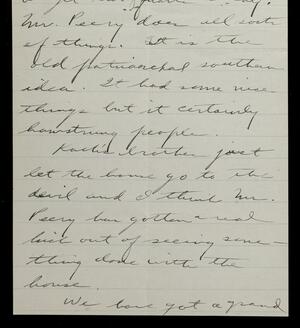 Mr. Peery does all sorts
of things. It is the
old patriarchal southern
idea. It had some nice
things but it certainly
hamstrung people.
brother just
let the home go to the
devil and I think Mr.
Peery has gotten a real
kick out of seeing some-
thing done with the
house.
We have got a grand